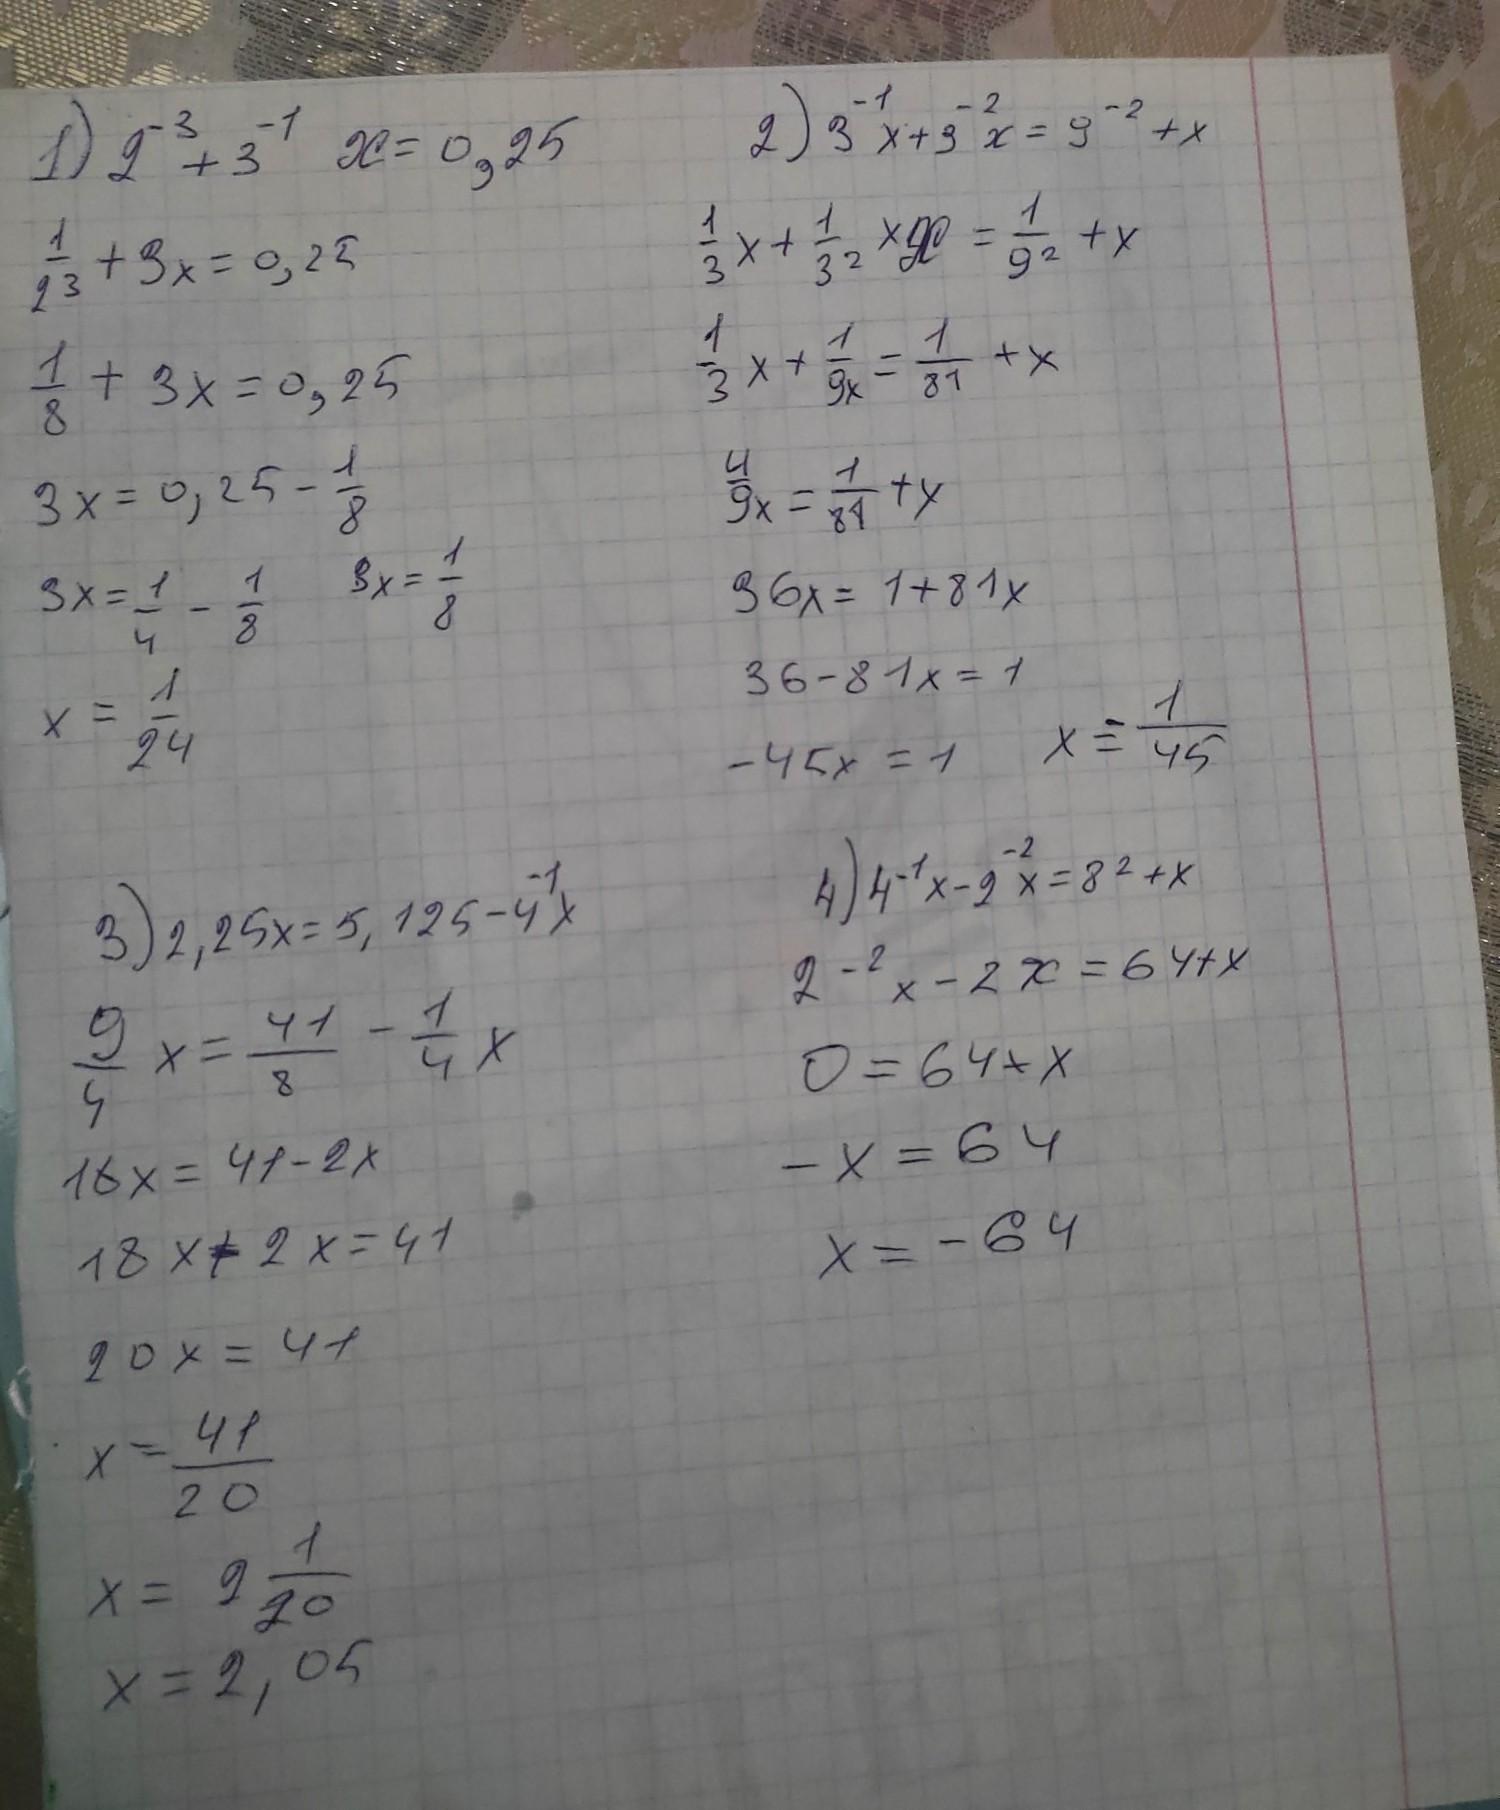 1) 2⁻³ + 3⁻¹ x = 0,25
1/2³ + 3x = 0,25
1/8 + 3x = 0,25
3x = 0,25 - 1/8
3x = 1/4 - 1/8   3x = 1/8
x = 1/24
2) 3⁻¹x + 3⁻²x = 9⁻² + x
1/3 x + 1/3² x x = 1/9² + x
1/3 x + 1/9x = 1/81 + x
4/9x = 1/81 + x
36x = 1 + 81x
36 - 81x = 1
-45x = 1   x = - 1/45
3) 2,25x = 5,125 - 4⁻¹x
9/4 x = 41/8 - 1/4 x
18x = 41 - 2x
18x + 2x = 41
20x = 41
x = 41/20
x = 2 1/20
x = 2,05
4) 4⁻¹x - 2⁻²x = 8² + x
2⁻²x - 2x = 64 + x
0 = 64 + x
-x = 64
x = -64